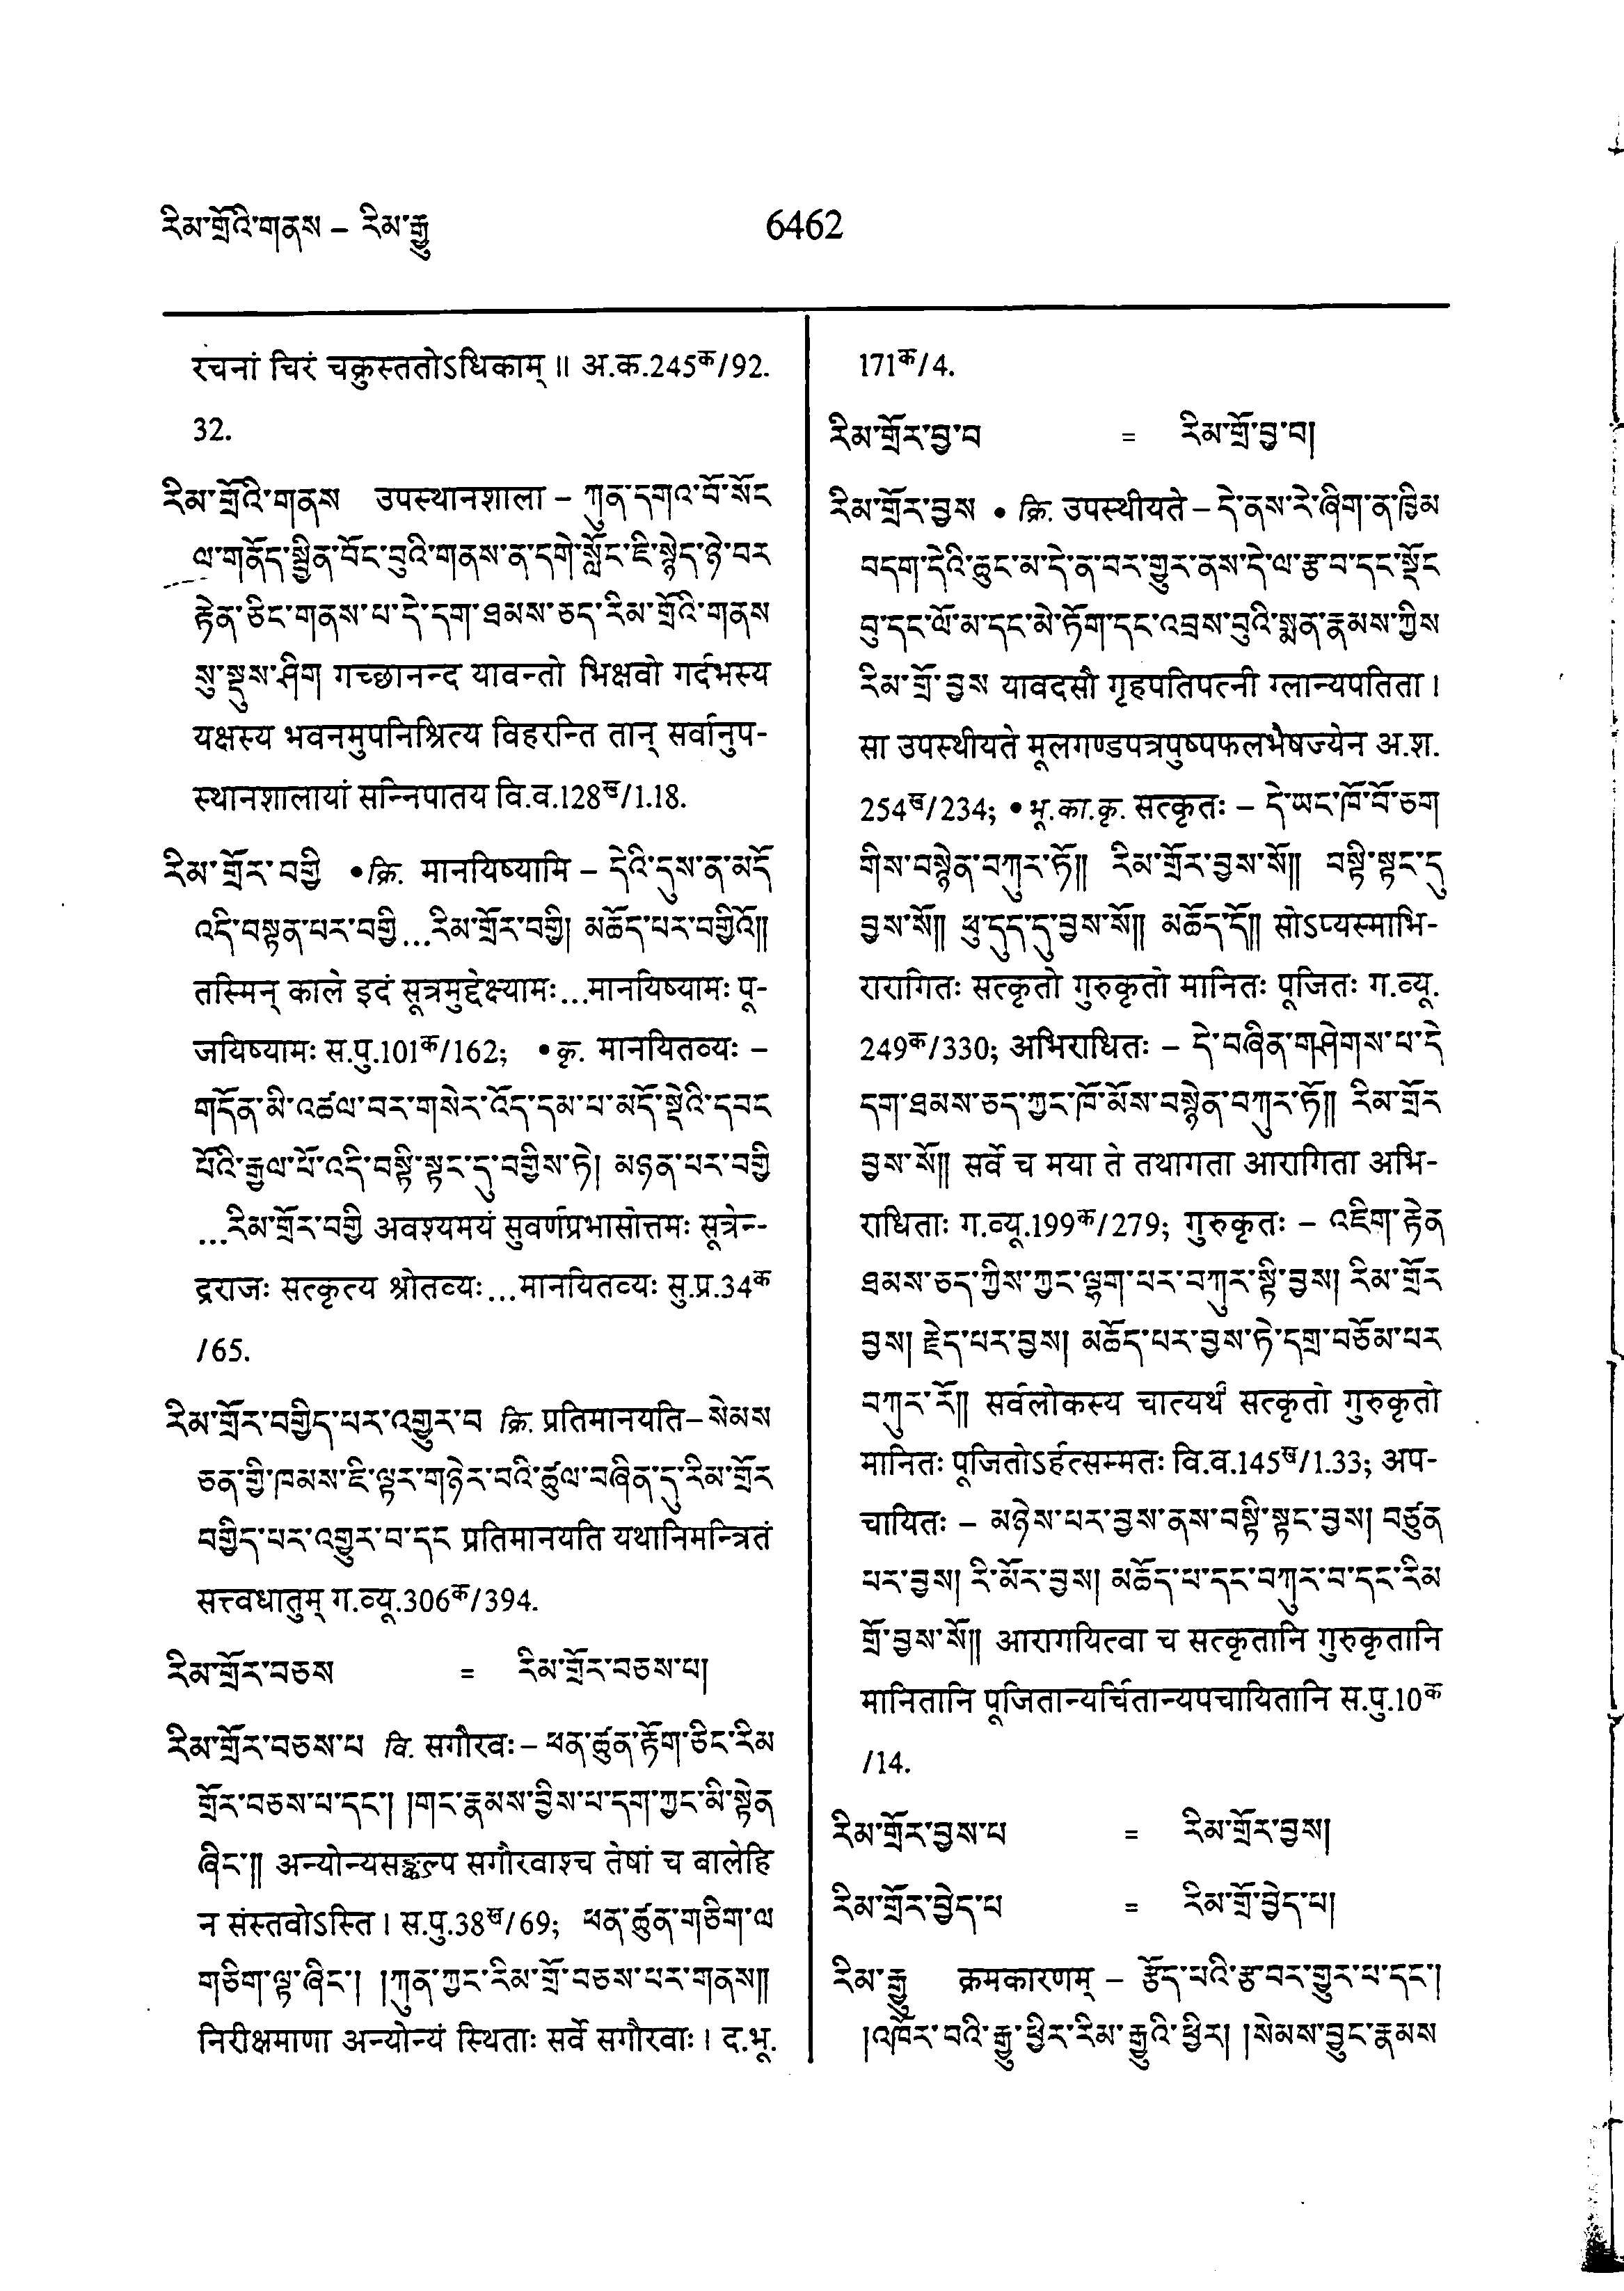 རིམ་གྲོའི་གནས – རིམ་རྒྱུ
6462
रचनां चिरं चक्रुस्ततोऽधिकाम् ॥ अ.क.245क/92.
32.
རིམ་གྲོའི་གནས उपस्थानशाला – ཀུན་དགའ་བོ་སོང
ལ་གནོད་སྦྱིན་བོང་བུའི་གནས་ན་དགེ་སློང་ཇི་སྙེད་ཉེ་བར
རྟེན་ཅིང་གནས་པ་དེ་དག་ཐམས་ཅད་རིམ་གྲོའི་གནས
སུ་སྡུས་ཤིག གच्छानन्द यावन्तो भिक्षवो गर्दभस्य
यक्षस्य भवनमुपनिश्रित्य विहरन्ति तान् सर्वानुप-
स्थानशालायां सन्निपातय वि.व.128ख/1.18.
རིམ་གྲོར་བགྱི •क्रि. मानयिष्यामि – དེའི་དུས་ན་མདོ
འདི་བསྟན་པར་བགྱི...རིམ་གྲོར་བགྱི། མཆོད་པར་བགྱིའོ༎
तस्मिन् काले इदं सूत्रमुद्देक्ष्यामः...मानयिष्यामः पू-
जयिष्यामः स.पु.101क/162; •कृ. मानयितव्यः –
གདོན་མི་འཚལ་བར་གསེར་འོད་དམ་པ་མདོ་སྡེའི་དབང
པོའི་རྒྱལ་པོ་འདི་བསྟི་སྟང་དུ་བགྱིས་ཏེ། མཉན་པར་བགྱི
...རིམ་གྲོར་བགྱི अवश्यमयं सुवर्णप्रभासोत्तमः सूत्रेन्-
द्रराजः सत्कृत्य श्रोतव्यः...मानयितव्यः सु.प्र.34क
/65.
རིམ་གྲོར་བགྱིད་པར་འགྱུར་བ क्रि. प्रतिमानयति– སེམས
ཅན་གྱི་ཁམས་ཇི་ལྟར་གཉེར་བའི་ཚུལ་བཞིན་དུ་རིམ་གྲོར
བགྱིད་པར་འགྱུར་བ་དང प्रतिमानयति यथानिमन्त्रितं
सत्त्वधातुम् ग.व्यू.306क/394.
རིམ་གྲོར་བཅས = རིམ་གྲོར་བཅས་པ།
རིམ་གྲོར་བཅས་པ वि. सगौरवः – ཕན་ཚུན་རྟོག་ཅིང་རིམ
གྲོར་བཅས་པ་དང་། །གང་རྣམས་བྱིས་པ་དག་ཀྱང་མི་སྟེན
ཞིང་༎ अन्योन्यसङ्कल्प सगौरवाश्च तेषां च बालेहि
न संस्तवोऽस्ति । स.पु.38ख/69; ཕན་ཚུན་གཅིག་ལ
གཅིག་ལྟ་ཞིང་། །ཀུན་ཀྱང་རིམ་གྲོ་བཅས་པར་གནས༎
निरीक्षमाणा अन्योन्यं स्थिताः सर्वे सगौरवाः । द.भू.
171क/4.
རིམ་གྲོར་བྱ་བ = རིམ་གྲོ་བྱ་བ།
རིམ་གྲོར་བྱས • क्रि. उपस्थीयते – དེ་ནས་རེ་ཞིག་ན་ཁྱིམ
བདག་དེའི་ཆུང་མ་དེ་ན་བར་གྱུར་ནས་དེ་ལ་རྩ་བ་དང་སྡོང
བུ་དང་ལོ་མ་དང་མེ་ཏོག་དང་འབྲས་བུའི་སྨན་རྣམས་ཀྱིས
རིམ་གྲོ་བྱས यावदसौ गृहपतिपत्नी ग्लान्यपतिता ।
सा उपस्थीयते मूलगण्डपत्रपुष्पफलभैषज्येन अ.श.
254ख/234; •भू.का.कृ. सत्कृतः – དེ་ཡང་ཁོ་བོ་ཅག
གིས་བསྙེན་བཀུར་ཏོ༎ རིམ་གྲོར་བྱས་སོ༎ བསྟི་སྟང་དུ
བྱས་སོ༎ ཕུ་དུད་དུ་བྱས་སོ༎ མཆོད་དོ༎ सोऽप्यस्माभि-
रारागितः सत्कृतो गुरुकृतो मानितः पूजितः ग.व्यू.
249क/330; अभिराधितः – དེ་བཞིན་གཤེགས་པ་དེ
དག་ཐམས་ཅད་ཀྱང་ཁོ་མོས་བསྙེན་བཀུར་ཏོ༎ རིམ་གྲོར
བྱས་སོ༎ सर्वे च मया ते तथागता आरागिता अभि-
राधिताः ग.व्यू.199क/279; गुरुकृतः – འཇིག་རྟེན
ཐམས་ཅད་ཀྱིས་ཀྱང་ལྷག་པར་བཀུར་སྟི་བྱས། རིམ་གྲོར
བྱས། རྗེད་པར་བྱས། མཆོད་པར་བྱས་ཏེ་དགྲ་བཅོམ་པར
བཀུར་རོ༎ सर्वलोकस्य चात्यर्थं सत्कृतो गुरुकृतो
मानितः पूजितोऽर्हत्सम्मतः वि.व.145ख/1.33; अप-
चायितः – མཉེས་པར་བྱས་ནས་བསྟི་སྟང་བྱས། བཙུན
པར་བྱས། རི་མོར་བྱས། མཆོད་པ་དང་བཀུར་བ་དང་རིམ
གྲོ་བྱས་སོ༎ आरागयित्वा च सत्कृतानि गुरुकृतानि
मानितानि पूजितान्यर्चितान्यपचायितानि स.पु.10क
/14.
རིམ་གྲོར་བྱས་པ = རིམ་གྲོར་བྱས།
རིམ་གྲོར་བྱེད་པ = རིམ་གྲོ་བྱེད་པ།
རིམ་རྒྱུ क्रमकारणम् – རྩོད་པའི་རྩ་བར་གྱུར་པ་དང་།
།འཁོར་བའི་རྒྱུ་ཕྱིར་རིམ་རྒྱུའི་ཕྱིར། །སེམས་བྱུང་རྣམས